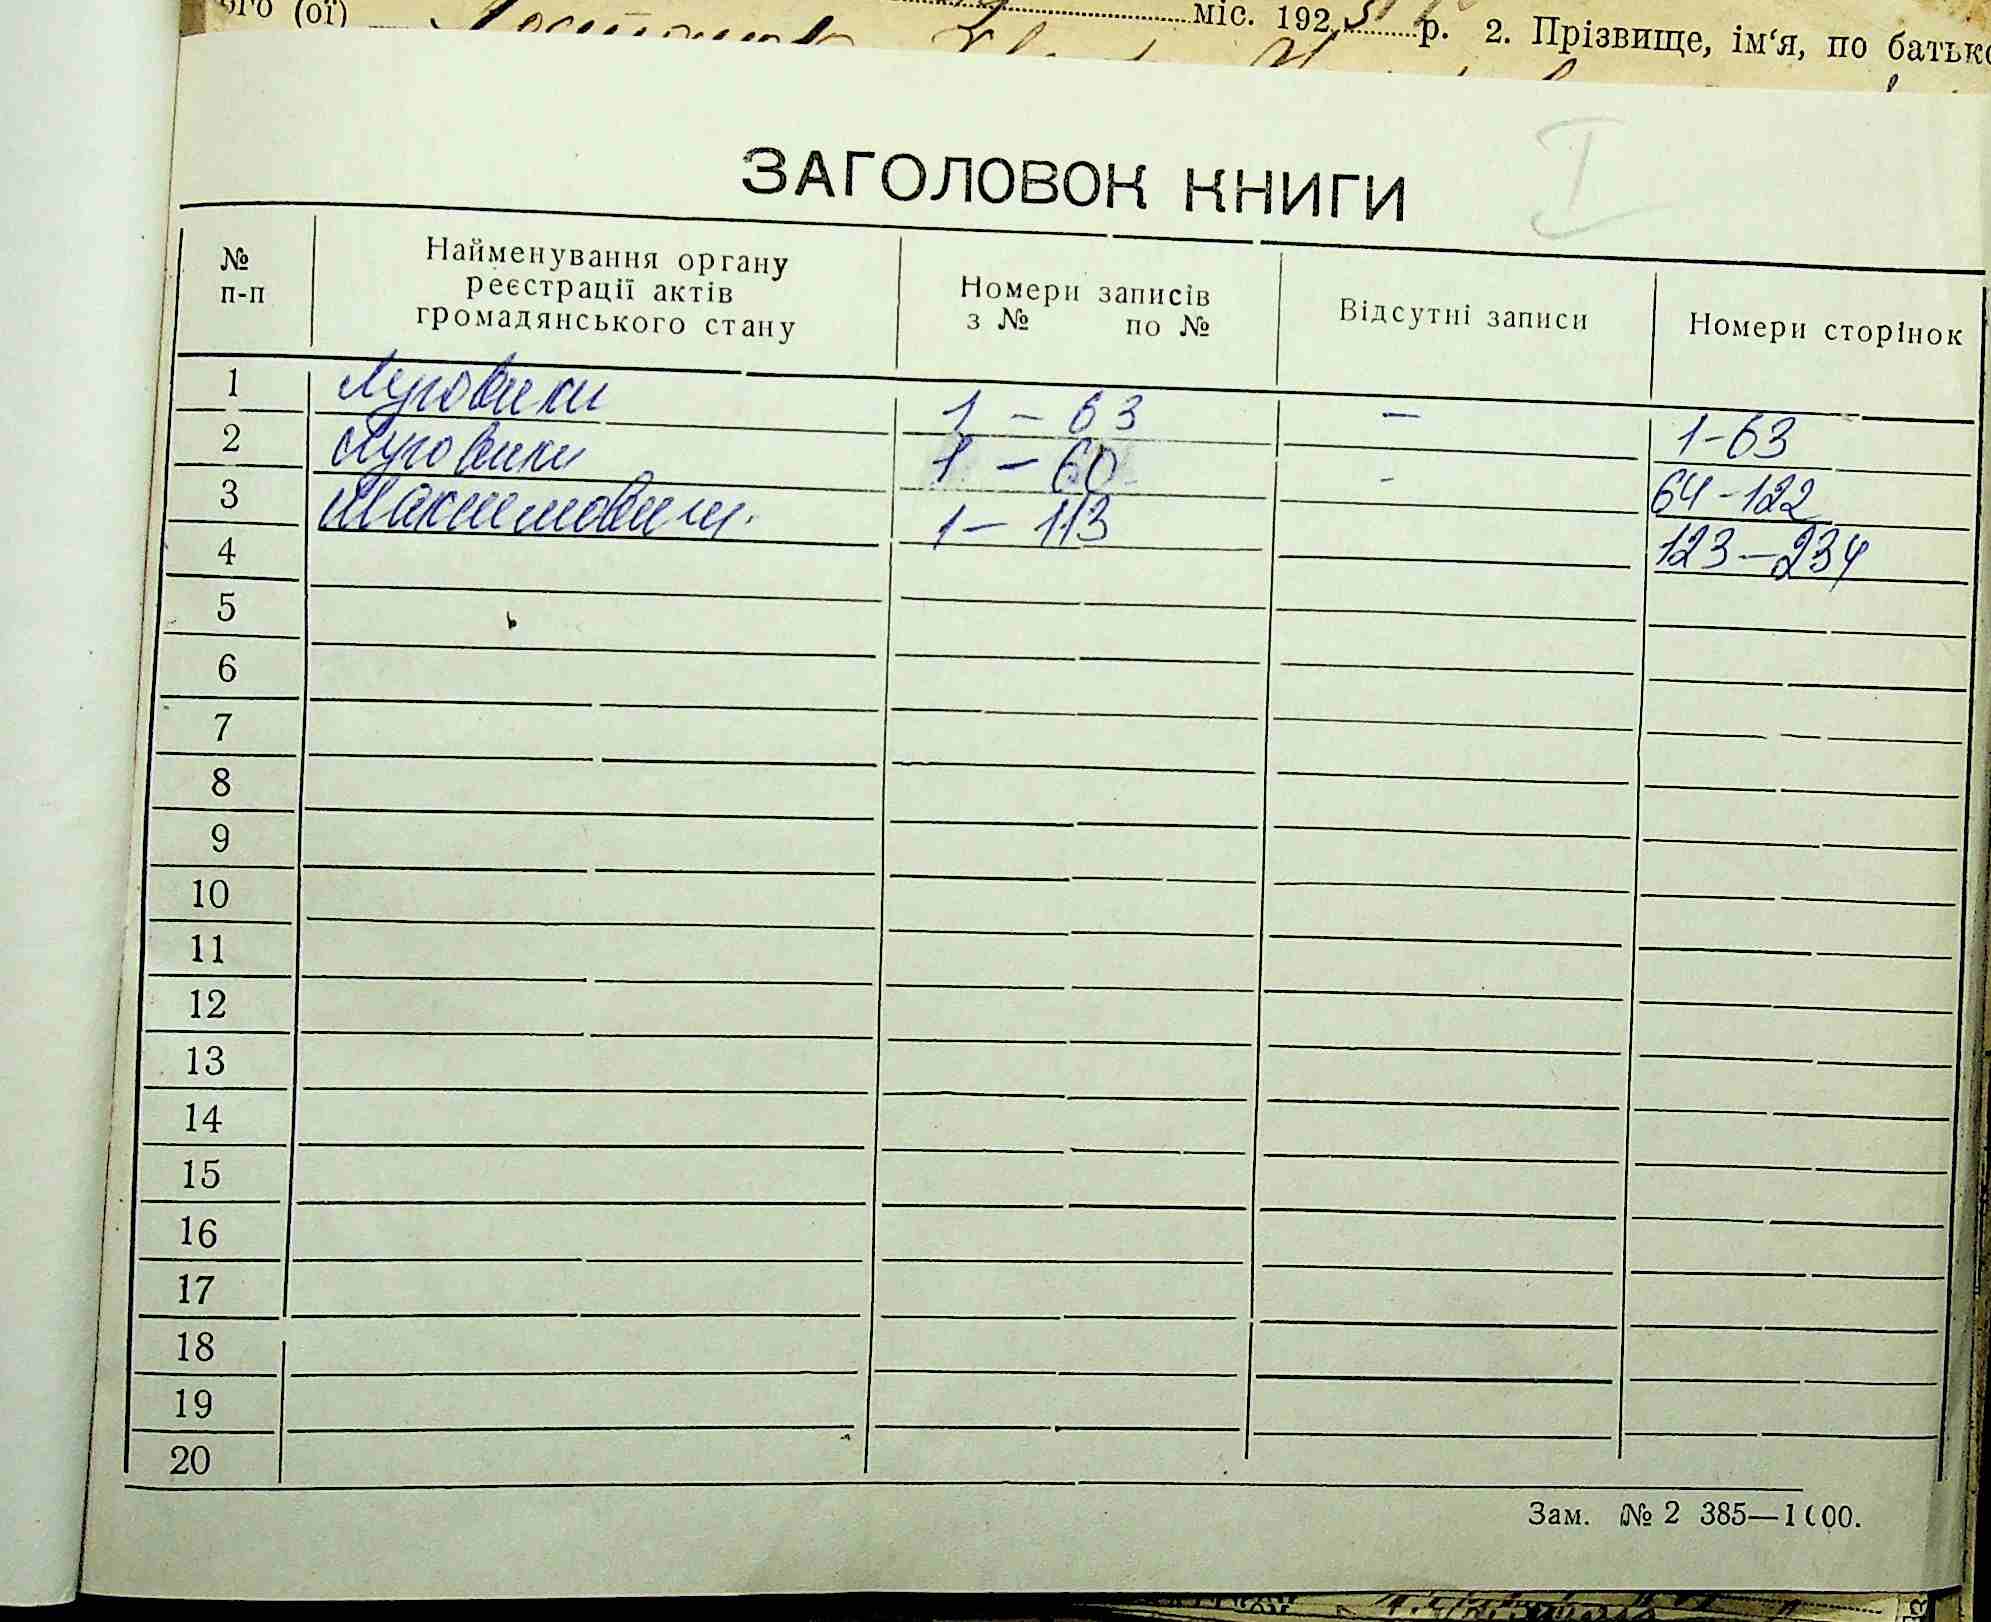 ого (ої) міс. 192 р. 2. Прізвище, ім‘я, по батько
I
ЗАГОЛОВОК КНИГИ
№ п-п Найменування органу реєстрації актів громадянського стану Номери записів з № по № Відсутні записи Номери сторінок
1 Луговики 1 – 63 – 1-63
2 Луговики 1 – 60 - 64-122
3 Максимовичі 1 – 113 123–234
4
5
6
7
8
9
10
11
12
13
14
15
16
17
18
19
20
Зам. № 2 385—1000.